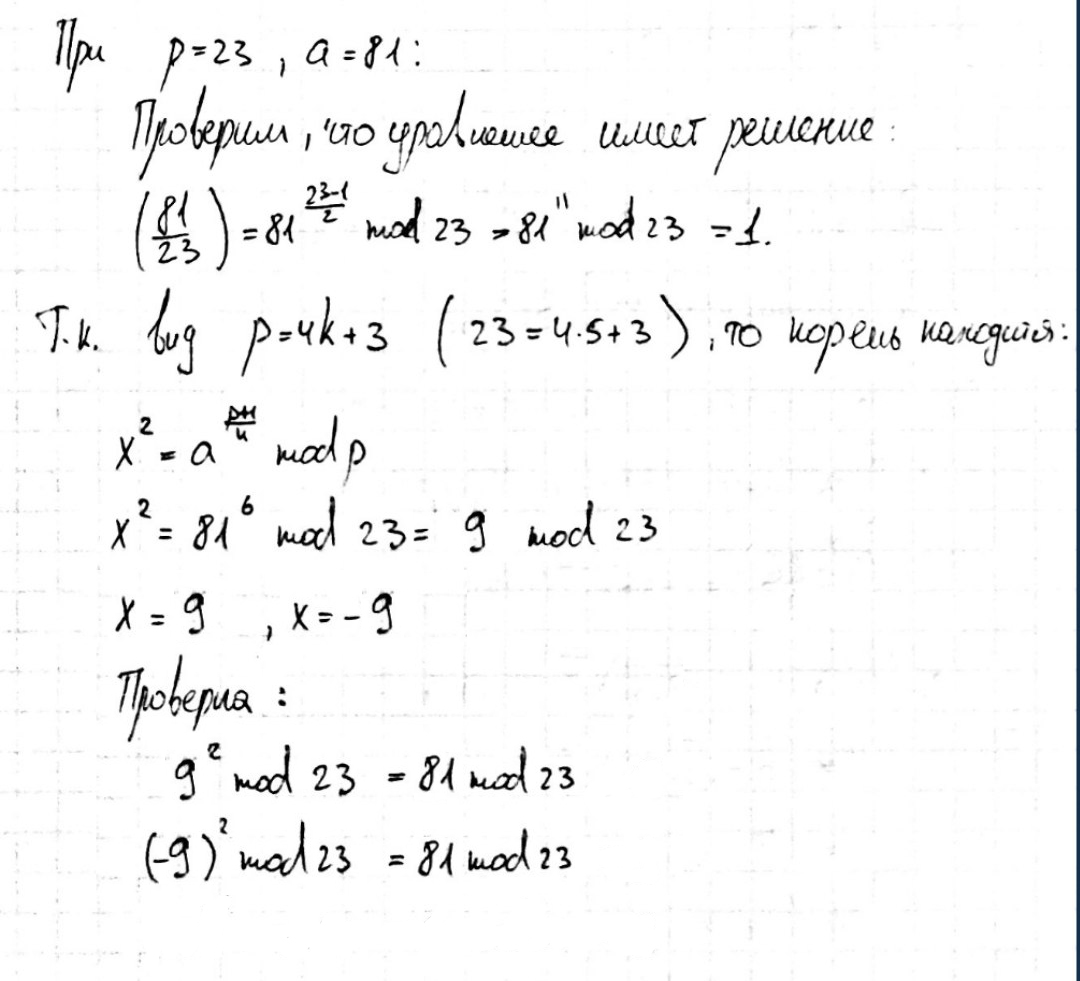 При p=23, a=81:
Проверим, что уравнение имеет решение:
(81/23) = 81^((23-1)/2) mod 23 = 81^11 mod 23 = 1.
Т.к. вид p=4k+3 (23=4·5+3), то корень находится:
x^2 = a^((p+1)/4) mod p
x^2 = 81^6 mod 23 = 9 mod 23
x = 9, x = -9
Проверка:
9^2 mod 23 = 81 mod 23
(-9)^2 mod 23 = 81 mod 23